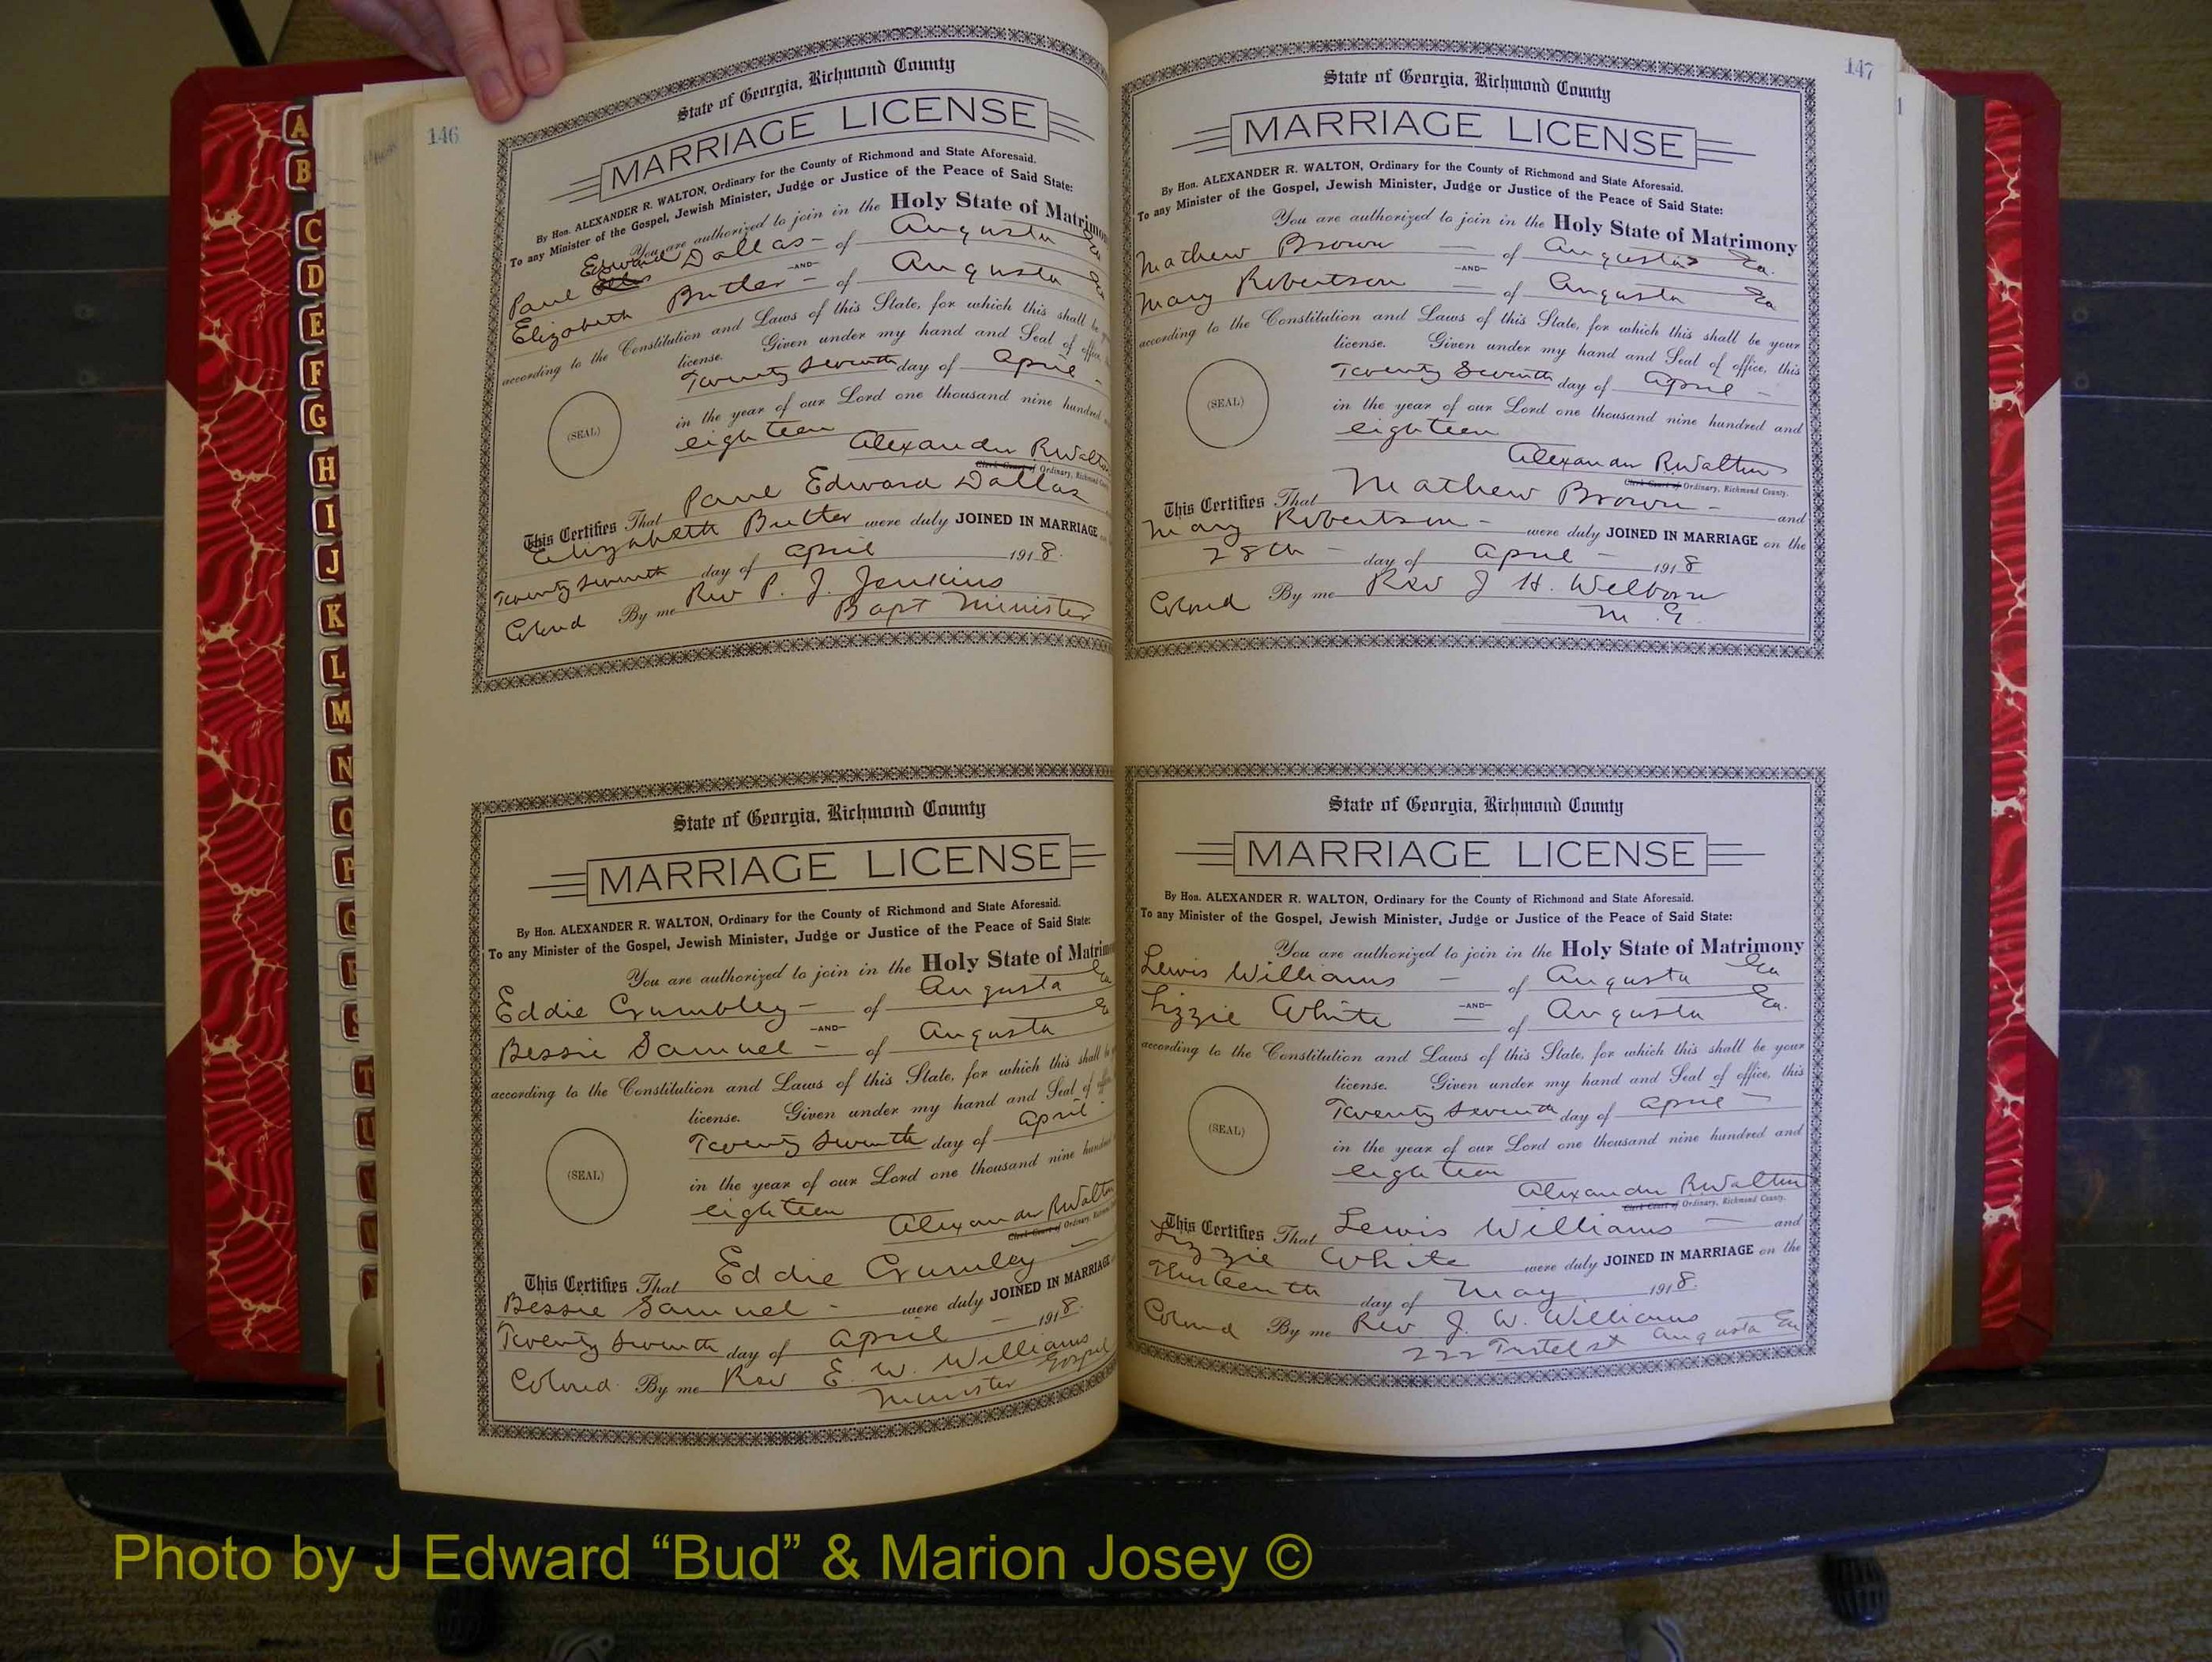 A
B
C
D
E
F
G
H
I
J
K
L
M
N
O
P
Q
R
S
T
U
V
W
146
State of Georgia, Richmond County
MARRIAGE LICENSE
By Hon. ALEXANDER R. WALTON, Ordinary for the County of Richmond and State Aforesaid.
To any Minister of the Gospel, Jewish Minister, Judge or Justice of the Peace of Said State:
You are authorized to join in the Holy State of Matrimony
Paul Edward Dallas - of Augusta Ga
-AND-
Elizabeth Butler - of Augusta Ga
according to the Constitution and Laws of this State, for which this shall be
license. Given under my hand and Seal of office,
(SEAL)
Twenty Seventh day of April -
in the year of our Lord one thousand nine hundred
eighteen
Alexander R Walton
Clerk Court of Ordinary, Richmond County
This Certifies That Paul Edward Dallas
Elizabeth Butler were duly JOINED IN MARRIAGE
Twenty Seventh day of April 1918.
Colored By me Rev P. J. Jenkins
Bapt Minister
State of Georgia, Richmond County
MARRIAGE LICENSE
By Hon. ALEXANDER R. WALTON, Ordinary for the County of Richmond and State Aforesaid.
To any Minister of the Gospel, Jewish Minister, Judge or Justice of the Peace of Said State:
You are authorized to join in the Holy State of Matrimo
Eddie Crumbley - of Augusta Ga
-AND-
Bessie Samuel - of Augusta G
according to the Constitution and Laws of this State, for which this shall be
license. Given under my hand and Seal of
(SEAL)
Twenty Seventh day of April
in the year of our Lord one thousand nine hundred
eighteen
Alexander R Walton
Clerk Court of Ordinary,
This Certifies That Eddie Crumley -
Bessie Samuel - were duly JOINED IN MARRIAGE
Twenty Seventh day of April - 1918.
Colored By me Rev E. W. Williams
Minister Gospel
147
State of Georgia, Richmond County
MARRIAGE LICENSE
By Hon. ALEXANDER R. WALTON, Ordinary for the County of Richmond and State Aforesaid.
To any Minister of the Gospel, Jewish Minister, Judge or Justice of the Peace of Said State:
You are authorized to join in the Holy State of Matrimony
Mathew Brown - of Augusta Ga.
-AND-
Mary Robertson - of Augusta Ga
according to the Constitution and Laws of this State, for which this shall be your
license. Given under my hand and Seal of office, this
(SEAL)
Twenty Seventh day of April -
in the year of our Lord one thousand nine hundred and
eighteen
Alexander R Walton
Clerk Court of Ordinary, Richmond County.
This Certifies That Mathew Brown - and
Mary Robertson - were duly JOINED IN MARRIAGE on the
28th - day of April - 1918
Colored By me Rev J H. Welborn
M. G.
State of Georgia, Richmond County
MARRIAGE LICENSE
By Hon. ALEXANDER R. WALTON, Ordinary for the County of Richmond and State Aforesaid.
To any Minister of the Gospel, Jewish Minister, Judge or Justice of the Peace of Said State:
You are authorized to join in the Holy State of Matrimony
Lewis Williams - of Augusta Ga
-AND-
Lizzie White - of Augusta Ga.
according to the Constitution and Laws of this State, for which this shall be your
license. Given under my hand and Seal of office, this
(SEAL)
Twenty Seventh day of April -
in the year of our Lord one thousand nine hundred and
eighteen
Alexander R Walton
Clerk Court of Ordinary, Richmond County.
This Certifies That Lewis Williams - and
Lizzie White were duly JOINED IN MARRIAGE on the
Thirteenth day of May 1918.
Colored By me Rev J. W. Williams
222 st Augusta Ga
Photo by J Edward “Bud” & Marion Josey ©